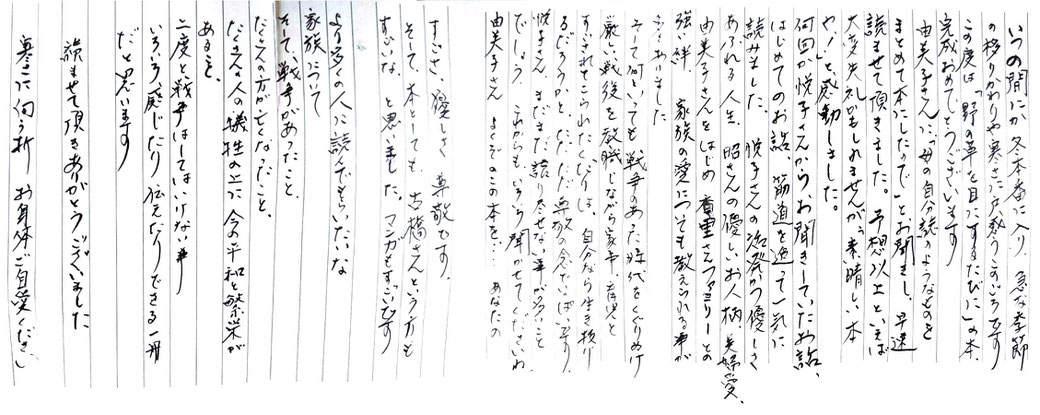 いつの間にか冬本番に入り、急な季節
の移りかわりや寒さに戸惑うこすごろです
この度は「野の草を目にするたびに」の本、
完成おめでとうございます
由美子さんに「母の自分統のようなものを
まとめて本にしたので」とお聞きし、早速
読ませて頂きました。予想以上といえば
大変失礼かもしれませんが〝素晴しい本
や！〟と感動しました。
何回か悦子さんからお聞きしていたお話、
はじめてのお話、筋道を追って一気に
読みました。悦子さんの活発かつ優しさ
あふれる人生、昭さんの優しいお人柄、夫婦愛、
由美子さんをはじめ香重さんファミリーとの
強い絆、家族の愛についても教えられる事が
多くありました
そして何といっても、戦争のあった時代をくぐりぬけ
厳しい戦後を教職しながら家事、育児と
すごされてこられたくだりは、自分なら生き抜け
るだろうかと、ただただ尊敬の念でいっぱいです。
悦子さん まだまだ語りたせない事が多いこと
でしょう。これからも、いろいろ聞かせてくださいね
由美子さん よくぞこの本を… あなたの
すごさ、優しさ 尊敬です。
そして、本としても、古橋さんという方も
すごいな、と思いました。マンガもすごいです
より多くの人に読んでもらいたいな
家族について
そして、戦争があったこと、
たくさんの方が亡くなったこと、
たくさんの人の犠牲の上に今の平和と繁栄が
あること、
二度と戦争はしてはいけない事
いろいろ感じたり伝えたりできる一冊
だと思います
読ませて頂きありがとうございました
寒さに向う折 お身体ご自愛ください